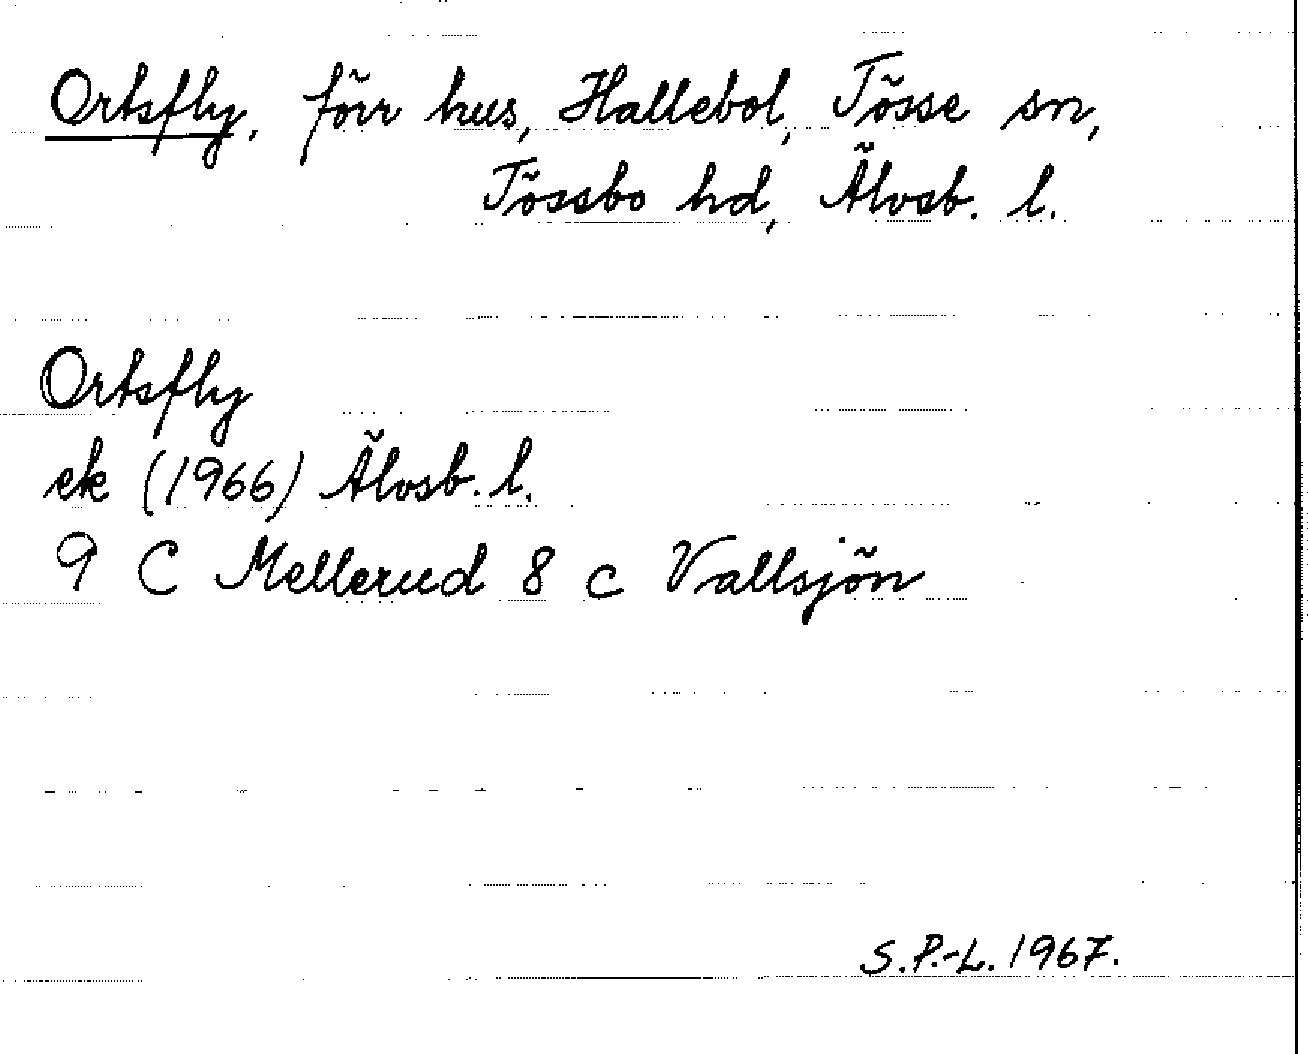 Ortsfly, förr hus, Hallebol, Tösse sn,
Tössbo hd, Älvsb. l.
Ortsfly
ek (1966) Älvsb. l.
9 C Mellerud 8 c Vallsjön
S.P.-L. 1967.